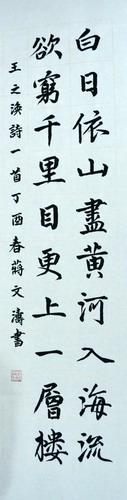 白日依山盡黃河入海流
欲窮千里目更上一層樓
王之渙詩一首丁酉春蔣文濤書